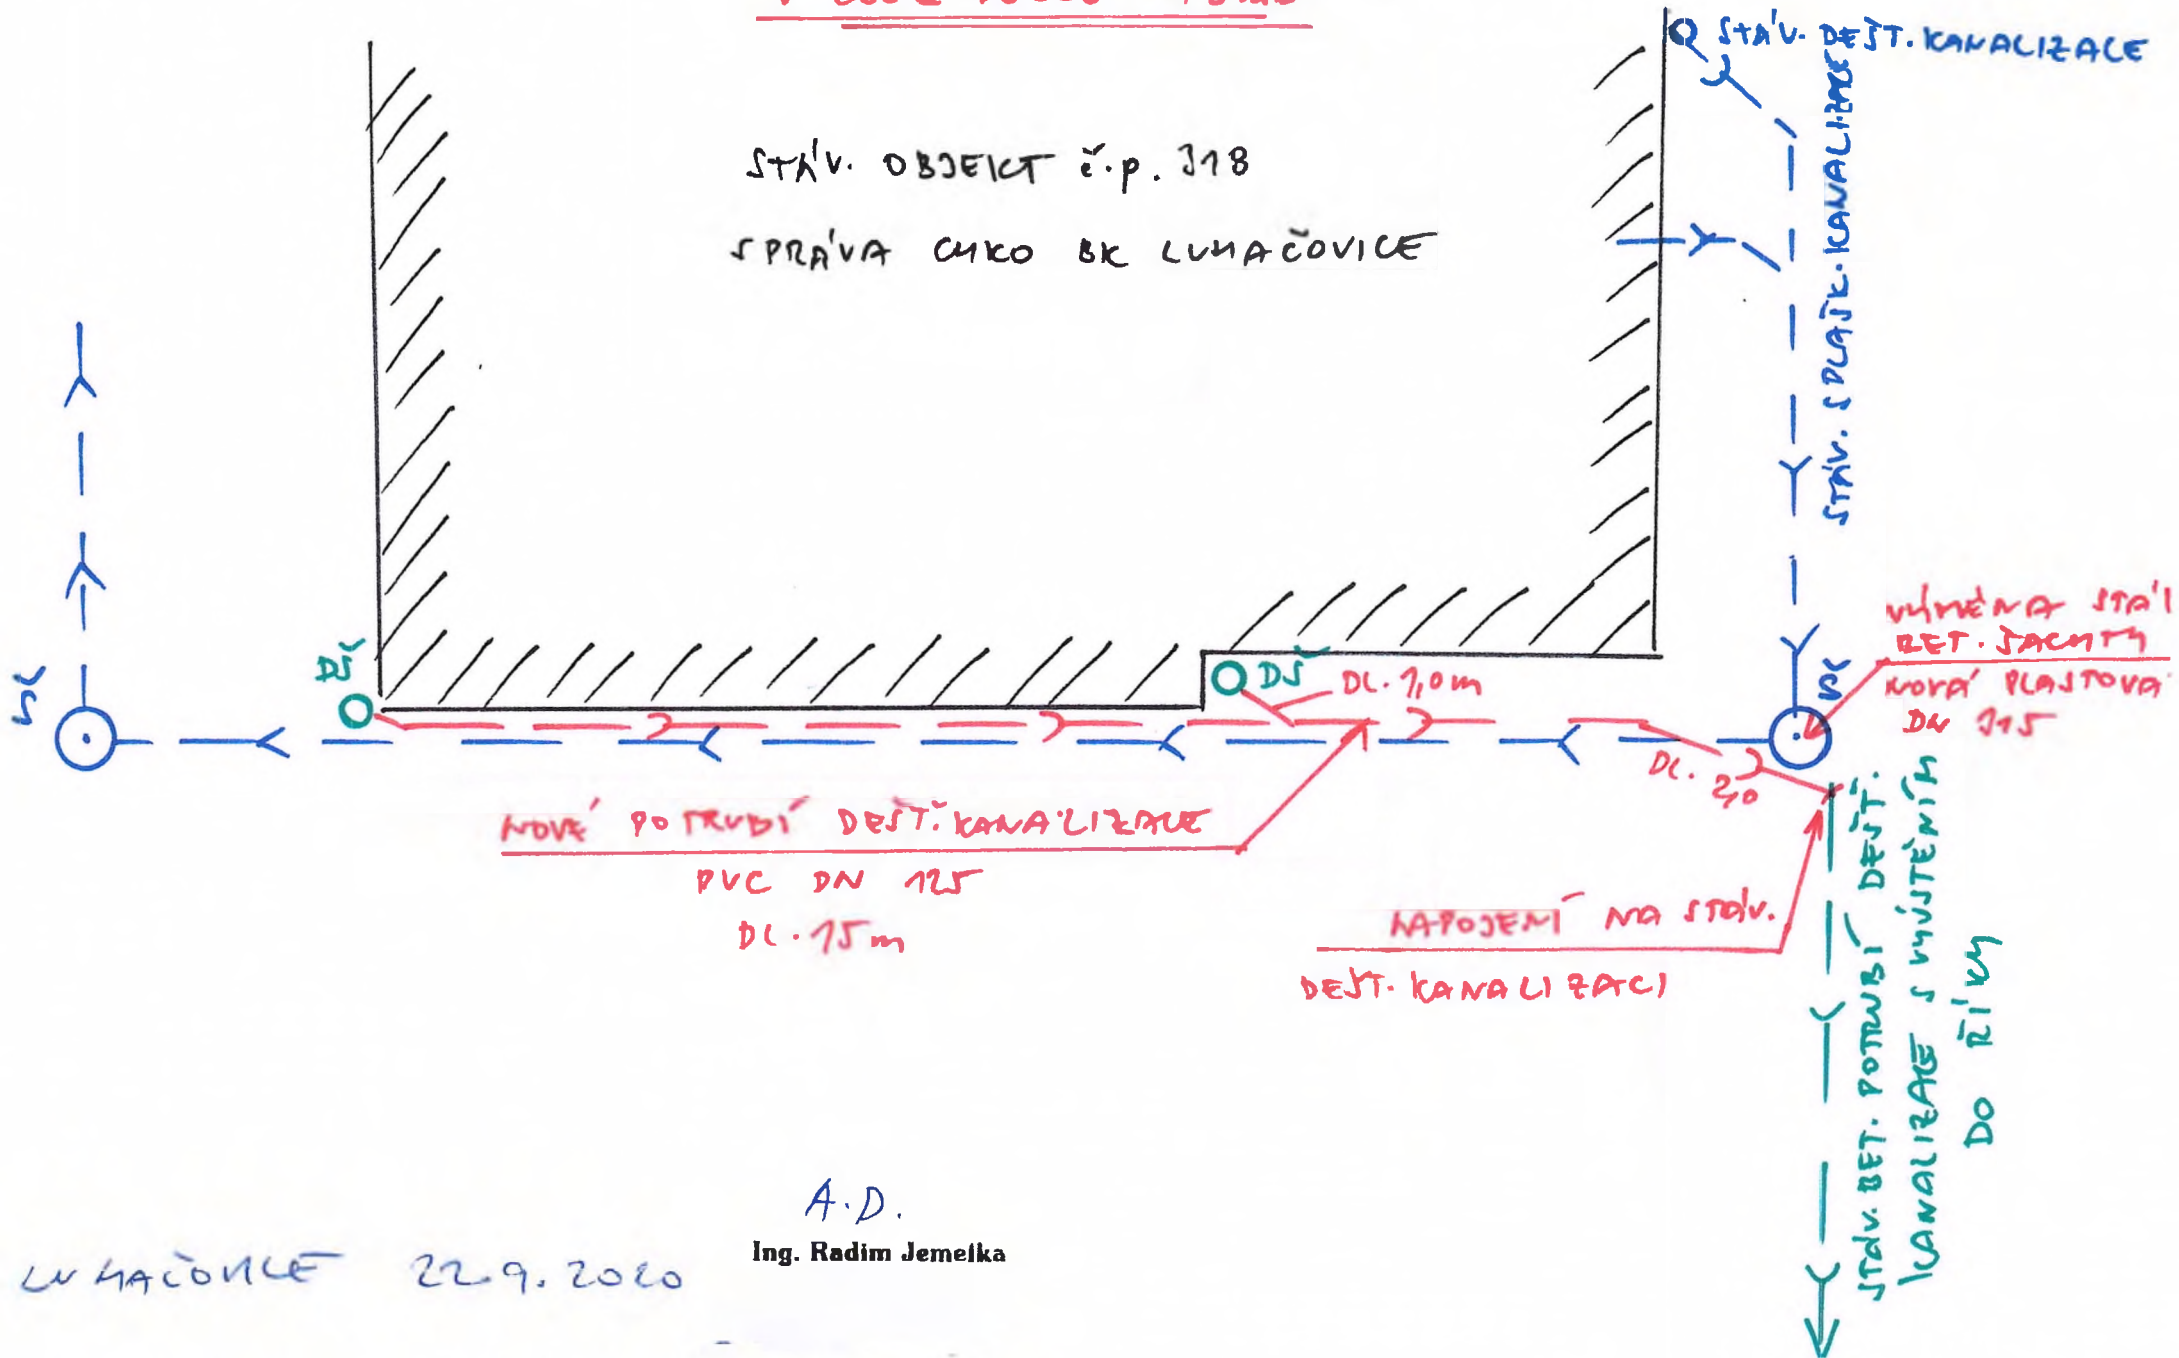 STÁV. DEŠT. KANALIZACE
STÁV. OBJEKT č.p. 318
SPRÁVA CHKO BK LUHAČOVICE
STÁV. SPLAŠK. KANALIZACE
VÝMĚNA STÁV
BET. ŠACHTY
NOVÁ PLASTOVÁ
DN 315
SŠ
DŠ
DŠ
SŠ
DL. 1,0 m
DL. 2,0
NOVÉ POTRUBÍ DEŠT. KANALIZACE
PVC DN 125
DL. 15 m
NAPOJENÍ NA STÁV.
DEŠT. KANALIZACI
STÁV. BET. POTRUBÍ DEŠT.
KANALIZACE S VYÚSTĚNÍM
DO ŘÍKY
A.D.
Ing. Radim Jemelka
LUHAČOVICE 22.9.2020